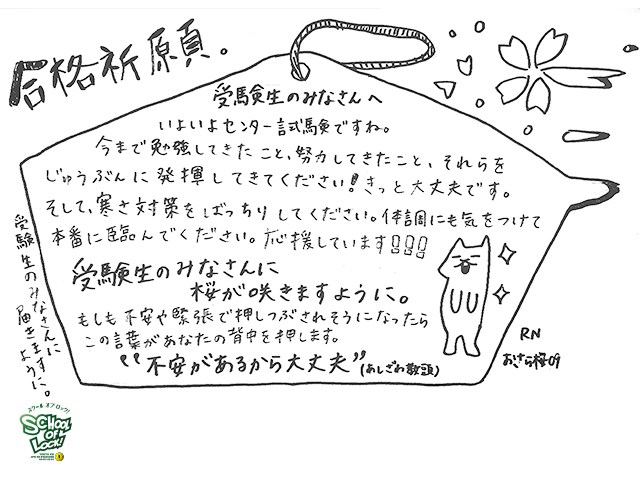 合格祈願。
受験生のみなさんへ
いよいよセンター試験ですね。
今まで勉強してきたこと、努力してきたこと、それらを
じゅうぶんに発揮してきてください!きっと大丈夫です。
そして、寒さ対策をばっちりしてください。体調にも気をつけて
本番に臨んでください。応援しています!!!
受験生のみなさんに
桜が咲きますように。
もしも不安や緊張で押しつぶされそうになったら
この言葉があなたの背中を押します。
“不安があるから大丈夫”(あしざわ教頭)
受験生のみなさんに
届きますように。
RN
スクール オブ ロック!
SCHOOL
OF
LOCK!